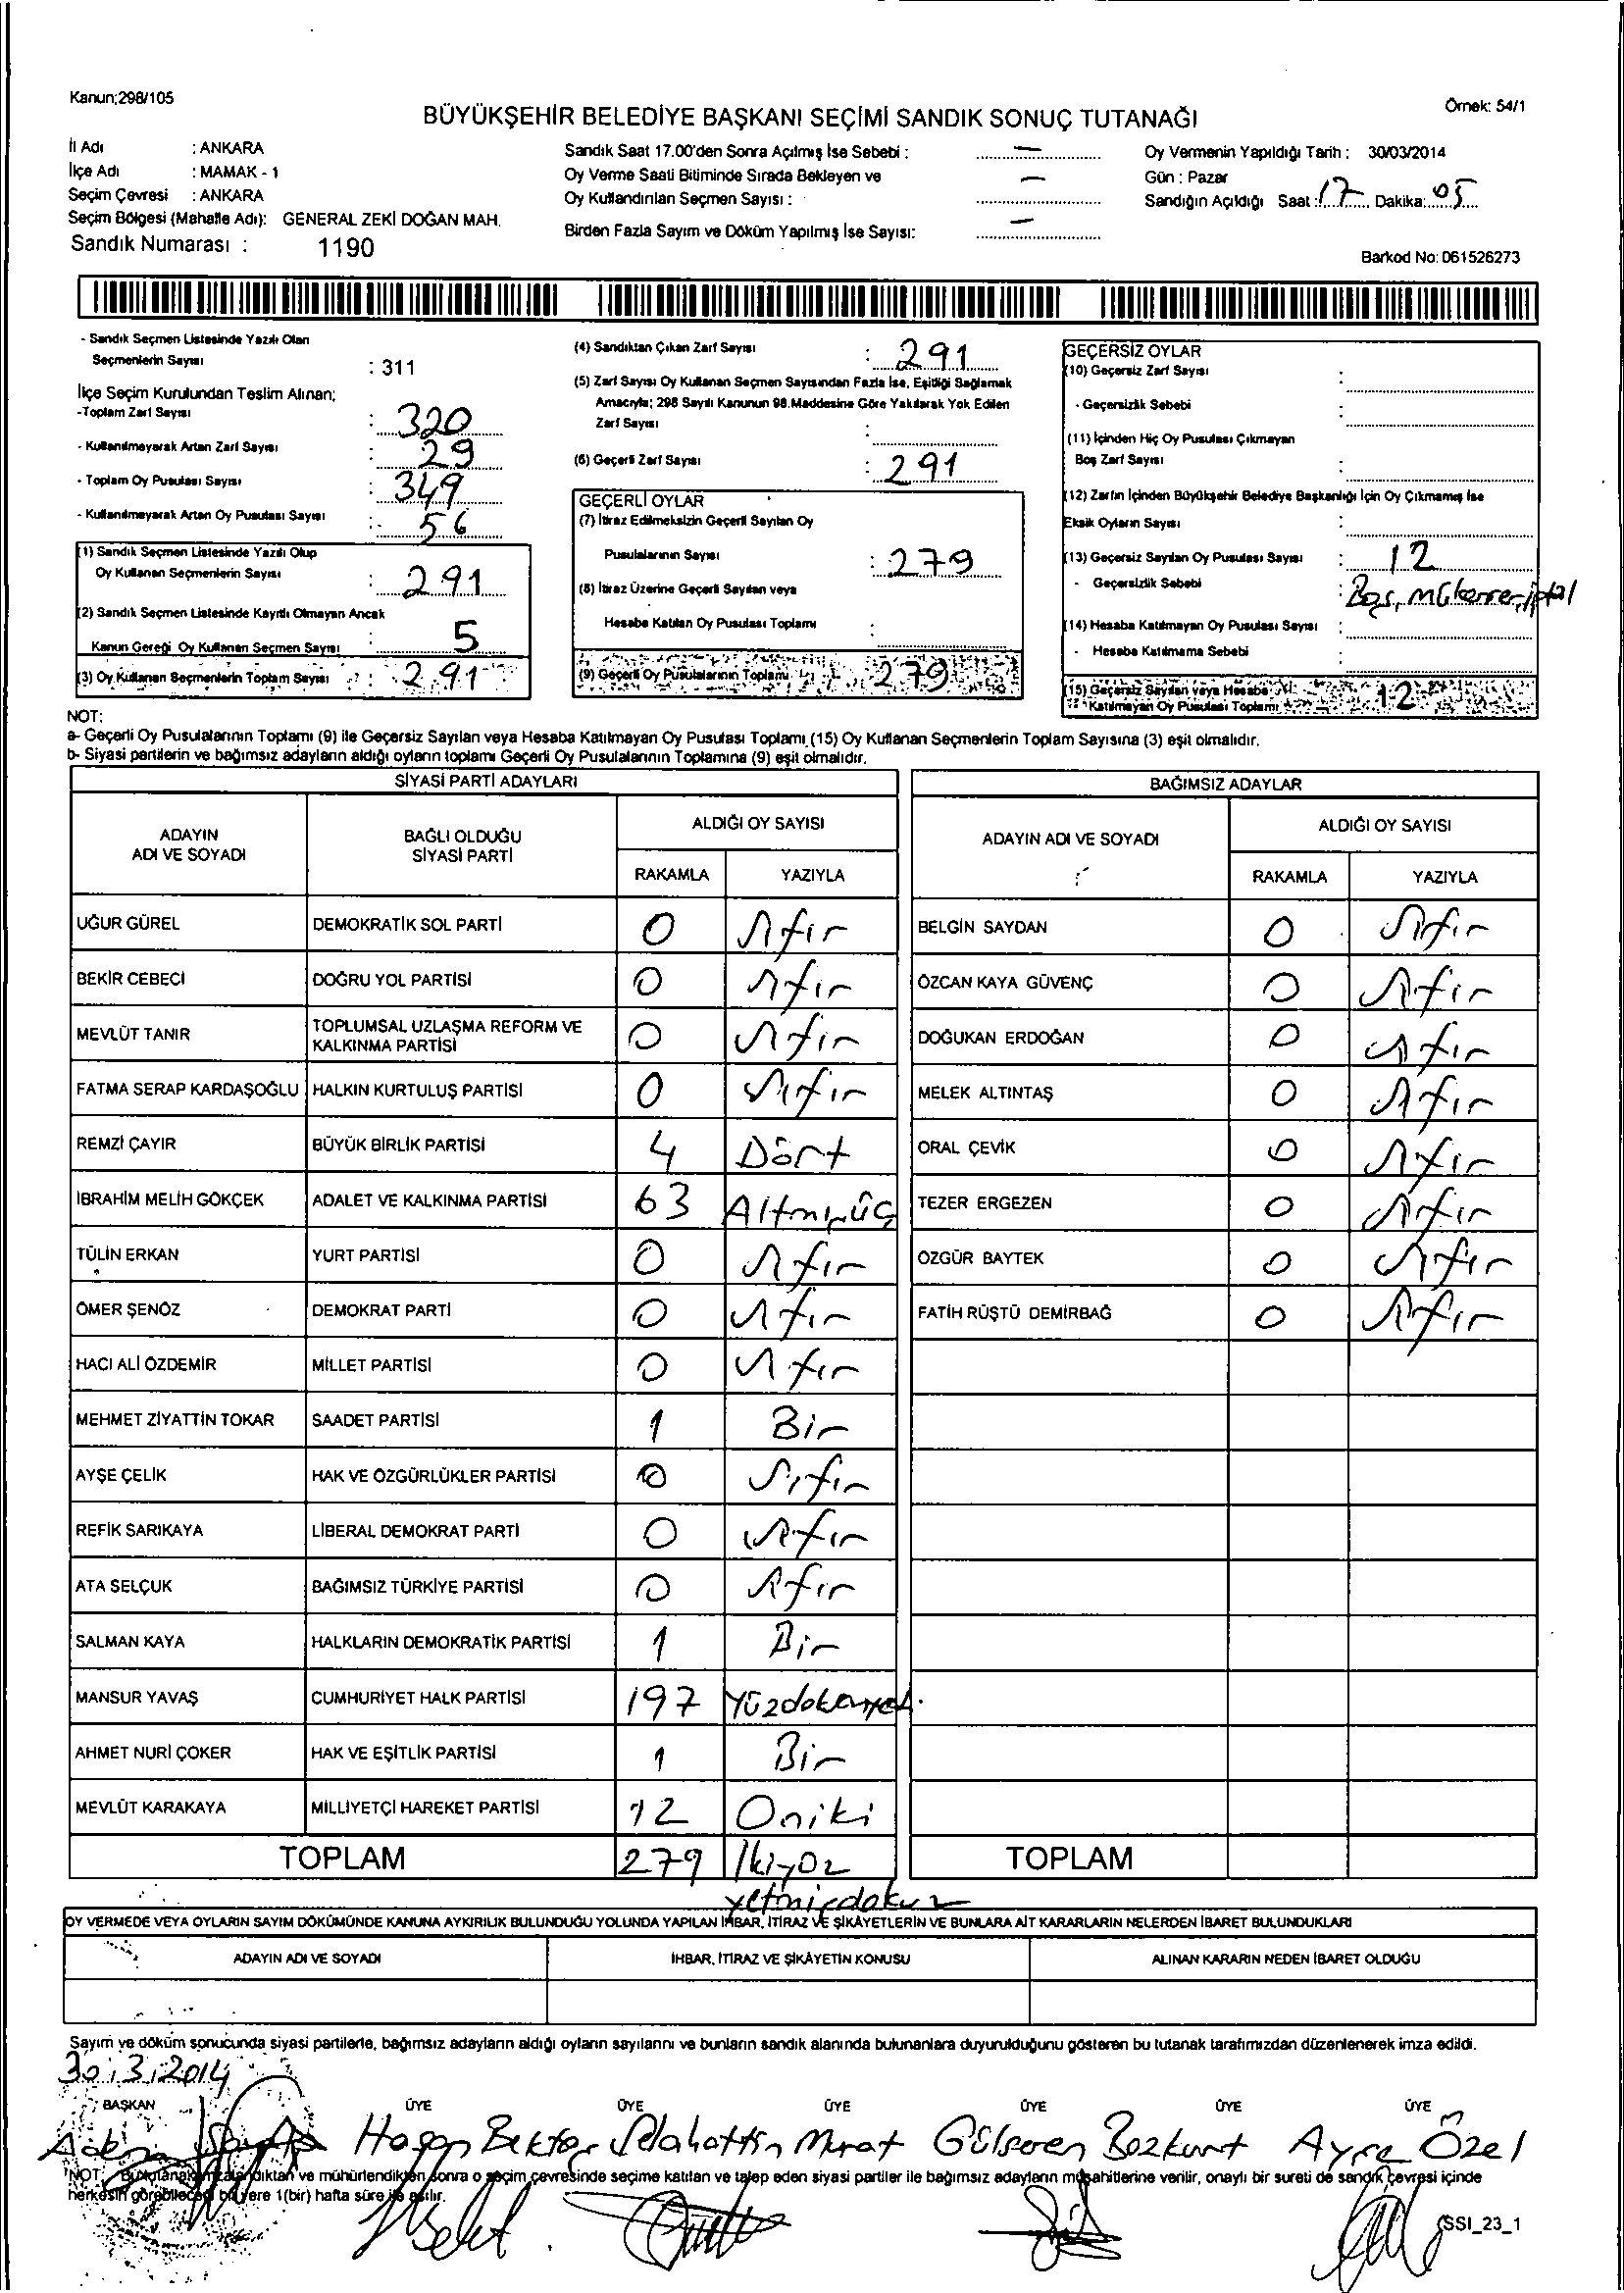 Kanun;298/105
Örnek: 54/1
BÜYÜKŞEHİR BELEDİYE BAŞKANI SEÇİMİ SANDIK SONUÇ TUTANAĞI
İl Adı : ANKARA
İlçe Adı : MAMAK - 1
Seçim Çevresi : ANKARA
Seçim Bölgesi (Mahalle Adı): GENERAL ZEKİ DOĞAN MAH.
Sandık Numarası : 1190
Sandık Saat 17.00'den Sonra Açılmış İse Sebebi : —
Oy Verme Saati Bitiminde Sırada Bekleyen ve
Oy Kullandırılan Seçmen Sayısı : —
Birden Fazla Sayım ve Döküm Yapılmış İse Sayısı: —
Oy Vermenin Yapıldığı Tarih : 30/03/2014
Gün : Pazar
Sandığın Açıldığı Saat : 17 Dakika: 05
Barkod No: 061526273
- Sandık Seçmen Listesinde Yazılı Olan
Seçmenlerin Sayısı : 311
İlçe Seçim Kurulundan Teslim Alınan;
-Toplam Zarf Sayısı : 320
- Kullanılmayarak Artan Zarf Sayısı : 29
- Toplam Oy Pusulası Sayısı : 349
- Kullanılmayarak Artan Oy Pusulası Sayısı : 56
(1) Sandık Seçmen Listesinde Yazılı Olup
Oy Kullanan Seçmenlerin Sayısı : 291
(2) Sandık Seçmen Listesinde Kayıtlı Olmayan Ancak
Kanun Gereği Oy Kullanan Seçmen Sayısı : 5
(3) Oy Kullanan Seçmenlerin Toplam Sayısı : 291
(4) Sandıktan Çıkan Zarf Sayısı : 291
(5) Zarf Sayısı Oy Kullanan Seçmen Sayısından Fazla İse, Eşitliği Sağlamak
Amacıyla; 298 Sayılı Kanunun 98.Maddesine Göre Yakılarak Yok Edilen
Zarf Sayısı :
(6) Geçerli Zarf Sayısı : 291
GEÇERLİ OYLAR
(7) İtiraz Edilmeksizin Geçerli Sayılan Oy
Pusulalarının Sayısı : 279
(8) İtiraz Üzerine Geçerli Sayılan veya
Hesaba Katılan Oy Pusulası Toplamı :
(9) Geçerli Oy Pusulalarının Toplamı : 279
GEÇERSİZ OYLAR
(10) Geçersiz Zarf Sayısı :
- Geçersizlik Sebebi :
(11) İçinden Hiç Oy Pusulası Çıkmayan
Boş Zarf Sayısı :
(12) Zarfın İçinden Büyükşehir Belediye Başkanlığı İçin Oy Çıkmamış İse
Eksik Oyların Sayısı :
(13) Geçersiz Sayılan Oy Pusulası Sayısı : 12
- Geçersizlik Sebebi : Boş, mükerrer, iptal
(14) Hesaba Katılmayan Oy Pusulası Sayısı :
- Hesaba Katılmama Sebebi :
(15) Geçersiz Sayılan veya Hesaba
Katılmayan Oy Pusulası Toplamı : 12
NOT:
a- Geçerli Oy Pusulalarının Toplamı (9) ile Geçersiz Sayılan veya Hesaba Katılmayan Oy Pusulası Toplamı (15) Oy Kullanan Seçmenlerin Toplam Sayısına (3) eşit olmalıdır.
b- Siyasi partilerin ve bağımsız adayların aldığı oyların toplamı Geçerli Oy Pusulalarının Toplamına (9) eşit olmalıdır.
SİYASİ PARTİ ADAYLARI
ADAYIN ADI VE SOYADI BAĞLI OLDUĞU SİYASİ PARTİ ALDIĞI OY SAYISI
RAKAMLA YAZIYLA
UĞUR GÜREL DEMOKRATİK SOL PARTİ 0 Sıfır
BEKİR CEBECİ DOĞRU YOL PARTİSİ 0 Sıfır
MEVLÜT TANIR TOPLUMSAL UZLAŞMA REFORM VE KALKINMA PARTİSİ 0 Sıfır
FATMA SERAP KARDAŞOĞLU HALKIN KURTULUŞ PARTİSİ 0 Sıfır
REMZİ ÇAYIR BÜYÜK BİRLİK PARTİSİ 4 Dört
İBRAHİM MELİH GÖKÇEK ADALET VE KALKINMA PARTİSİ 63 Altmışüç
TÜLİN ERKAN YURT PARTİSİ 0 Sıfır
ÖMER ŞENÖZ DEMOKRAT PARTİ 0 Sıfır
HACI ALİ ÖZDEMİR MİLLET PARTİSİ 0 Sıfır
MEHMET ZİYATTİN TOKAR SAADET PARTİSİ 1 Bir
AYŞE ÇELİK HAK VE ÖZGÜRLÜKLER PARTİSİ 0 Sıfır
REFİK SARIKAYA LİBERAL DEMOKRAT PARTİ 0 Sıfır
ATA SELÇUK BAĞIMSIZ TÜRKİYE PARTİSİ 0 Sıfır
SALMAN KAYA HALKLARIN DEMOKRATİK PARTİSİ 1 Bir
MANSUR YAVAŞ CUMHURİYET HALK PARTİSİ 197 Yüzdoksanyedi
AHMET NURİ ÇOKER HAK VE EŞİTLİK PARTİSİ 1 Bir
MEVLÜT KARAKAYA MİLLİYETÇİ HAREKET PARTİSİ 12 Oniki
TOPLAM 279 İkiyüz
yetmişdokuz
BAĞIMSIZ ADAYLAR
ADAYIN ADI VE SOYADI ALDIĞI OY SAYISI
RAKAMLA YAZIYLA
BELGİN SAYDAN 0 Sıfır
ÖZCAN KAYA GÜVENÇ 0 Sıfır
DOĞUKAN ERDOĞAN 0 Sıfır
MELEK ALTINTAŞ 0 Sıfır
ORAL ÇEVİK 0 Sıfır
TEZER ERGEZEN 0 Sıfır
ÖZGÜR BAYTEK 0 Sıfır
FATİH RÜŞTÜ DEMİRBAĞ 0 Sıfır
TOPLAM
OY VERMEDE VEYA OYLARIN SAYIM DÖKÜMÜNDE KANUNA AYKIRILIK BULUNDUĞU YOLUNDA YAPILAN İHBAR, İTİRAZ VE ŞİKÂYETLERİN VE BUNLARA AİT KARARLARIN NELERDEN İBARET BULUNDUKLARI
ADAYIN ADI VE SOYADI İHBAR, İTİRAZ VE ŞİKÂYETİN KONUSU ALINAN KARARIN NEDEN İBARET OLDUĞU
Sayım ve döküm sonucunda siyasi partilerle, bağımsız adayların aldığı oyların sayılarını ve bunların sandık alanında bulunanlara duyurulduğunu gösteren bu tutanak tarafımızdan düzenlenerek imza edildi.
30.3.2014
BAŞKAN ÜYE ÜYE ÜYE ÜYE ÜYE ÜYE
Hasan Bektaş Selahattin Murat Gülseren Bozkurt Ayşe Özel
NOT: Bu tutanak imzalandıktan ve mühürlendikten sonra o seçim çevresinde seçime katılan ve talep eden siyasi partiler ile bağımsız adayların müşahitlerine verilir, onaylı bir sureti de sandık çevresi içinde
herkesin görebileceği bir yere 1(bir) hafta süre ile asılır.
SSI_23_1